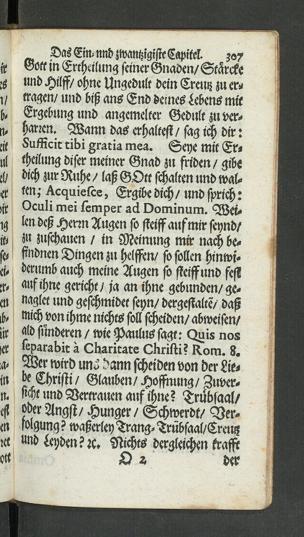 Das Ein- und zwantzigiste Capitel. 307
Gott in Ertheilung seiner Gnaden/ Stärcke
und Hilff/ ohne Ungedult dein Creutz zu er-
tragen/ und biß ans End deines Lebens mit
Ergebung und angemelter Gedult zu ver-
harren. Wann das erhaltest/ sag ich dir:
Sufficit tibi gratia mea. Seye mit Er-
theilung diser meiner Gnad zu friden/ gibe
dich zur Ruhe/ laß GOtt schalten und wal-
ten; Acquiesce, Ergibe dich/ und sprich:
Oculi mei semper ad Dominum. Wei-
len deß Herrn Augen so steiff auf mir seynd/
zu zuschauen/ in Meinung mir nach be-
findnen Dingen zu helffen/ so sollen hinwi-
derumb auch meine Augen so steiff und fest
auf ihne gericht/ ja an ihne gebunden/ ge-
naglet und geschmidet seyn/ dergestaltē/ daß
mich von ihme nichts soll scheiden/ abweisen/
ald sünderen/ wie Paulus sagt: Quis nos
separabit à Charitate Christi? Rom. 8.
Wer wird uns dann scheiden von der Lie-
be Christi/ Glauben/ Hoffnung/ Zuver-
sicht und Vertrauen auf ihne? Trübsaal/
oder Angst/ Hunger/ Schwerdt/ Ver-
folgung? waßerley Trang-Trübsaal/ Creutz
und Leyden? ꝛc. Nichts dergleichen trafft
O 2 der